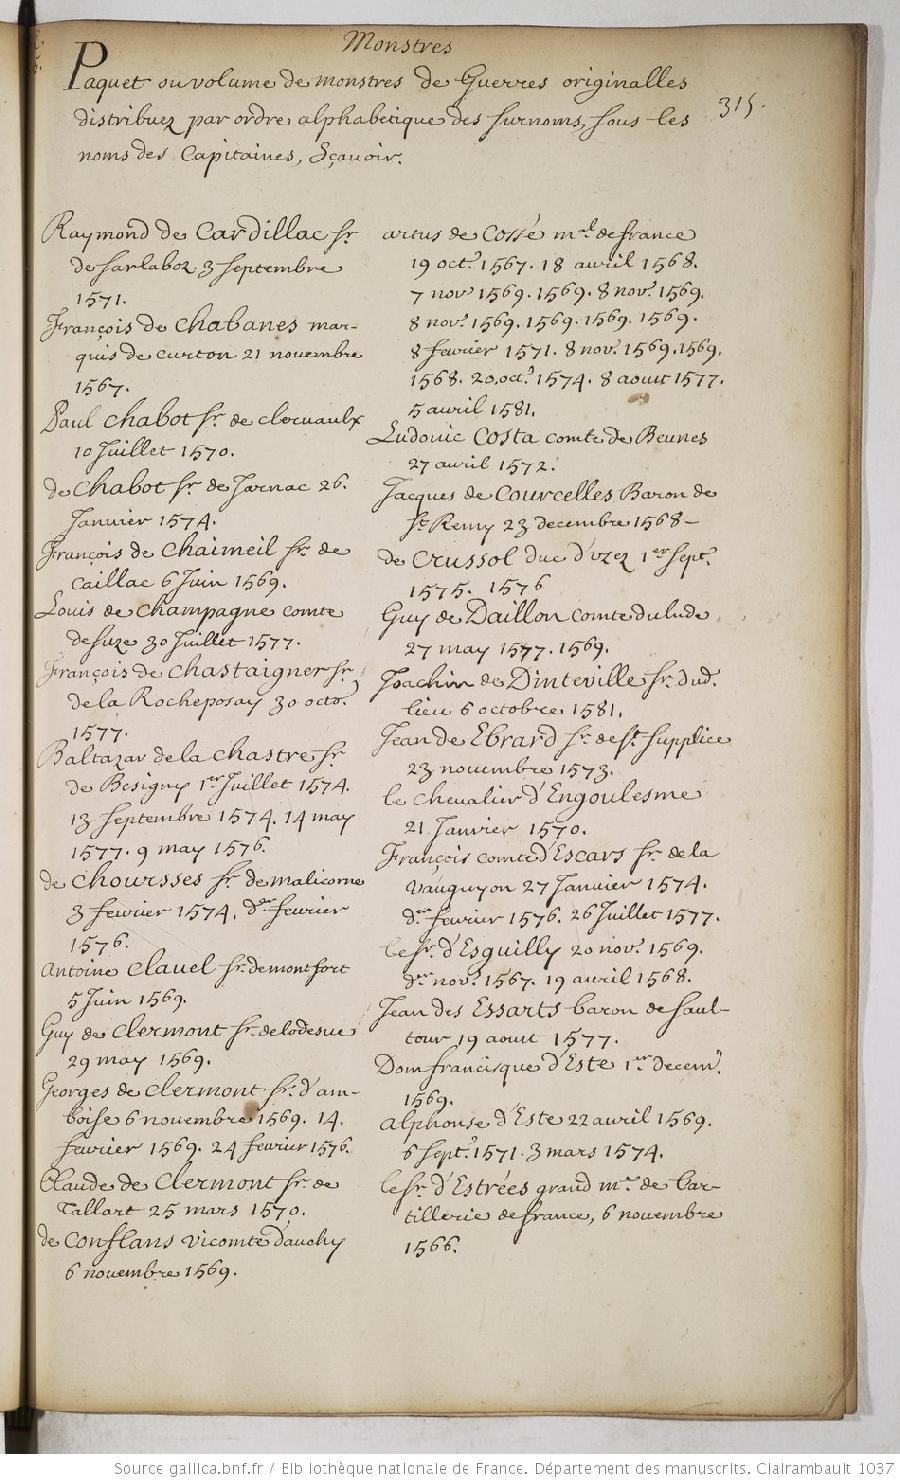 Monstres
315.
Paquet ou volume de monstres de Guerres originalles
distribuez par ordre alphabetique des surnoms, sous les
noms des Capitaines, Sçavoir.
Raymond de Cardillac sr.
de sarlaboz 3 septembre
1571.
François de Chabanes mar-
quis de curton 21 novembre
1567.
Paul Chabot sr. de clervaulx
10 Juillet 1570.
de Chabot sr. de Jarnac 26.
Janvier 1574.
François de Chaimeil sr. de
Caillac 6 Juin 1569.
Louis de Champagne comte
de suze 30 Juillet 1577.
François de Chastaigner sr.
de la Rocheposay 30 octo.
1577.
Baltazar de la Chastre sr.
de Besigny 1er Juillet 1574.
13 septembre 1574. 14 may
1577. 9 may 1576.
de Choursses sr. de malicorne
3 fevrier 1574. der fevrier
1576.
Antoine Clavel sr. de montfort
5 Juin 1569.
Guy de Clermont sr. de lodesve
29 may 1569.
Georges de Clermont sr. d'am-
boise 6 novembre 1569. 14.
fevrier 1569. 24 fevrier 1576.
Claude de Clermont sr. de
Tallart 25 mars 1570.
de Conflans vicomte d'auchy
6 novembre 1569.
artus de Cossé mal. de france
19 oct. 1567. 18 avril 1568.
7 nov. 1569. 1569. 8 nov. 1569.
8 nov. 1569. 1569. 1569. 1569.
8 fevrier 1571. 8 nov. 1569. 1569.
1568. 20 oct. 1574. 8 aoust 1577.
5 avril 1581.
Ludovic Costa comte de Beunes
27 avril 1572.
Jacques de Courcelles Baron de
St. Remy 23 decembre 1568 -
de Crussol duc d'uzez 1er sept.
1575. 1576
Guy de Daillon comte du lude
27 may 1577. 1569.
Joachin de Dinteville sr. dud.
lieu 6 octobre 1581.
Jean de Ebrard sr. de st. supplice
23 novembre 1573.
le Chevalier d'Engoulesme
21 Janvier 1570.
François comte d'Escars sr. de la
vauguyon 27 Janvier 1574.
der fevrier 1576. 26 Juillet 1577.
le sr. d'Esguilly 20 nov. 1569.
der nov. 1567. 19 avril 1568.
Jean des Essarts baron de saul-
tour 19 aout 1577.
Dom francisque d'Este 1er decem.
1569.
alphonse d'Este 22 avril 1569.
6 sept. 1571. 3 mars 1574.
le sr. d'Estrées grand me. de l'ar-
tillerie de france, 6 novembre
1566.
Source gallica.bnf.fr / Bibliothèque nationale de France. Département des manuscrits. Clairambault 1037